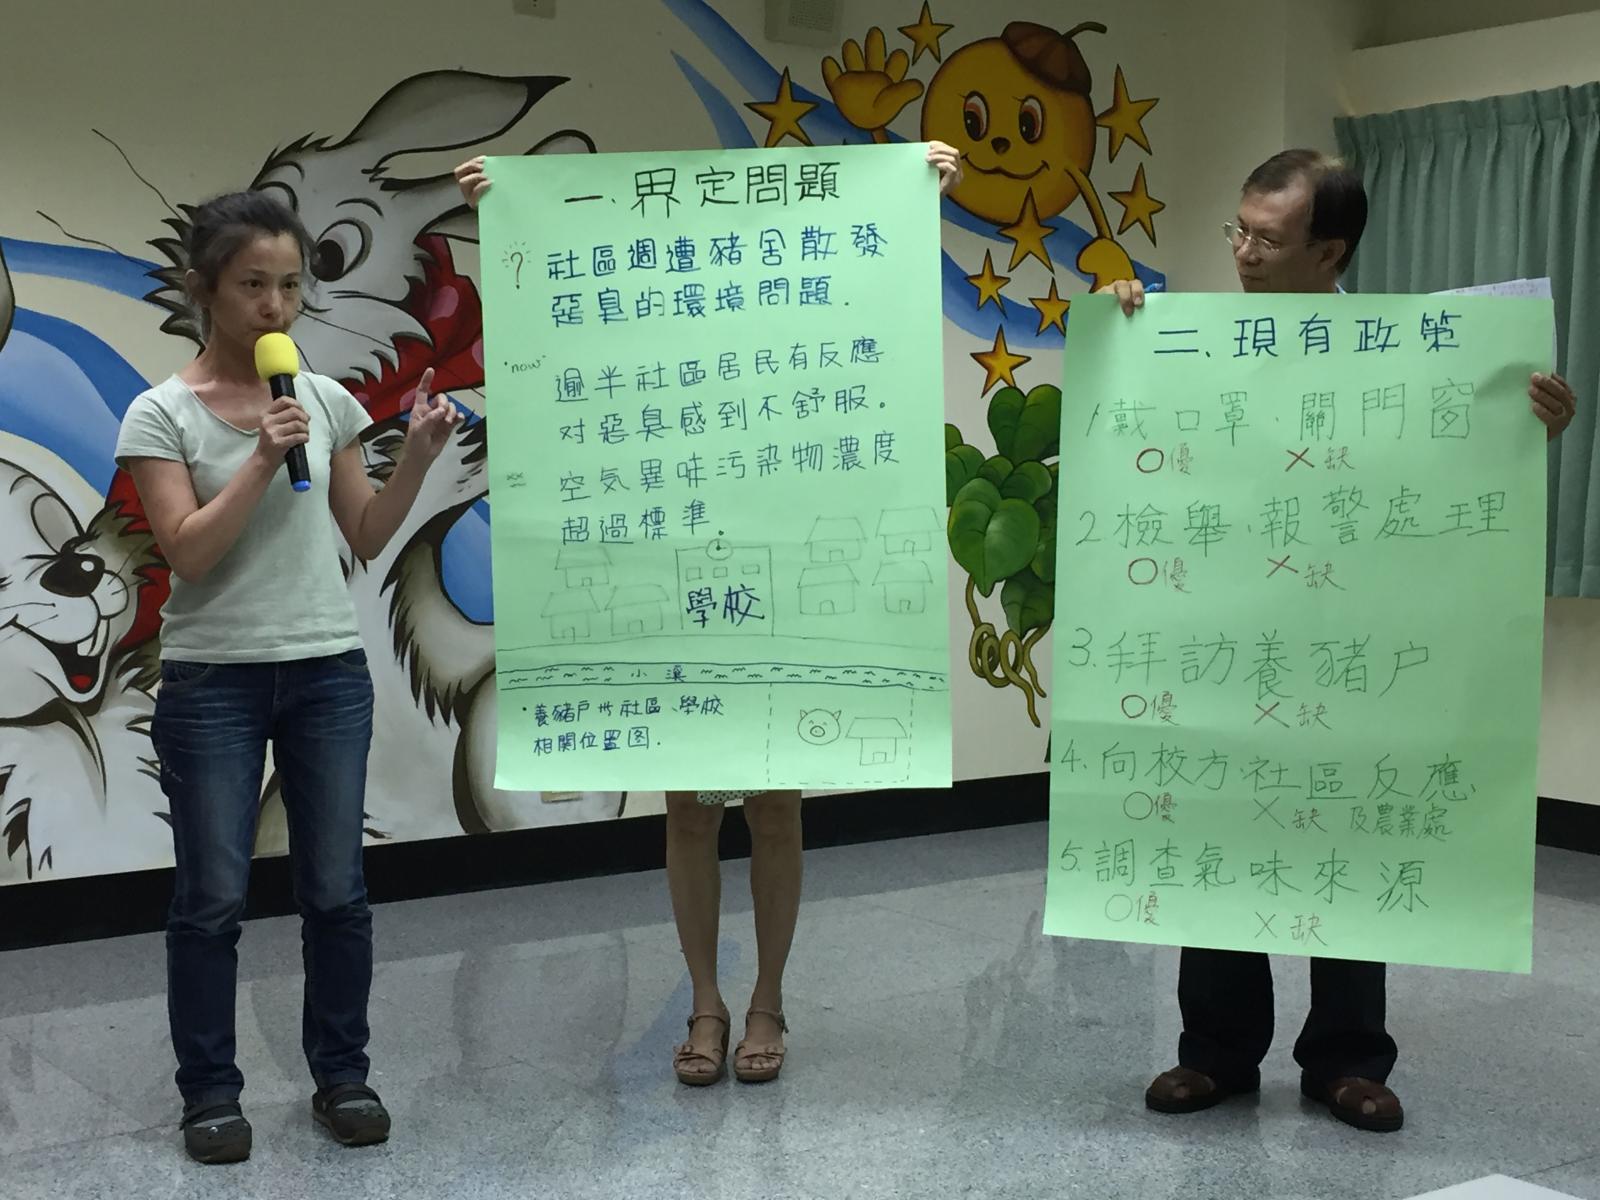 一、界定問題
? 社區週遭豬舍散發
惡臭的環境問題.
"now" 逾半社區居民有反應
对惡臭感到不舒服。
空気異味污染物濃度
超過標準。
學校
小溪
·養豬戶 社區、學校
相関位置图.
二、現有政策
1戴口罩、關門窗
○優 ×缺
2.檢舉、報警處理
○優 ×缺
3.拜訪養豬户
○優 ×缺
4.向校方、社區反應
○優 ×缺 及農業處
5.調查氣味來源
○優 ×缺